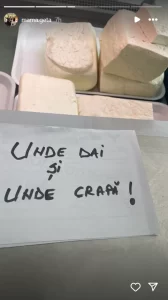 mamagata_7h
UNDE DAI
ȘI
UNDE CRAPĂ!